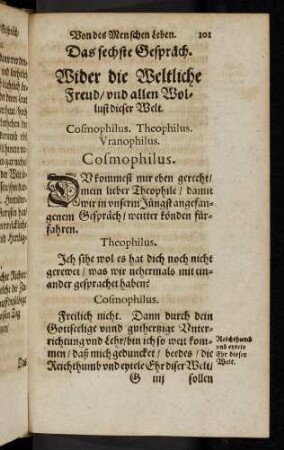 Von des Menschen Leben. 101
Das sechste Gespräch.
Wider die Weltliche
Freud/ vnd allen Wol-
lust dieser Welt.
Cosmophilus. Theophilus.
Vranophilus.
Cosmophilus.
DV kommest mir eben gerecht/
mein lieber Theophile/ damit
wir in vnserm Jüngst angefan-
genem Gespräch/ weitter könden für-
fahren.
Theophilus.
Ich sihe wol es hat dich noch nicht
gerewet/ was wir nehermals mit ein-
ander gesprachet haben?
Cosmophilus.
Freilich nicht. Dann durch dein
Gottseeligt vnnd guthertzige Vnter-
richtung vnd Lehr/ bin ich so weit kom-
men/ daß mich geduncket/ beedes/ die
Reichthumb vnd eytele Ehr diser Welt/
G iij sollen
Reichthumb
vnd eytele
Ehr dieser
Welt.